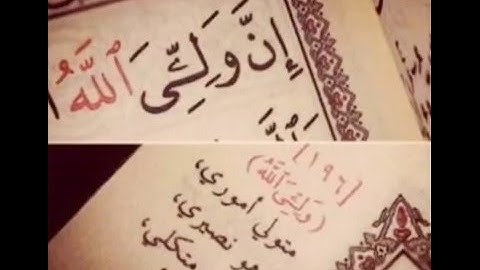 إِنَّ وَلِـِّۧىَ ٱللَّهُ
[١٩٦]
(وَلِـِّۧيَ ٱللَّهُ)
متولي أموري،
هو نصيري،
متكلي،